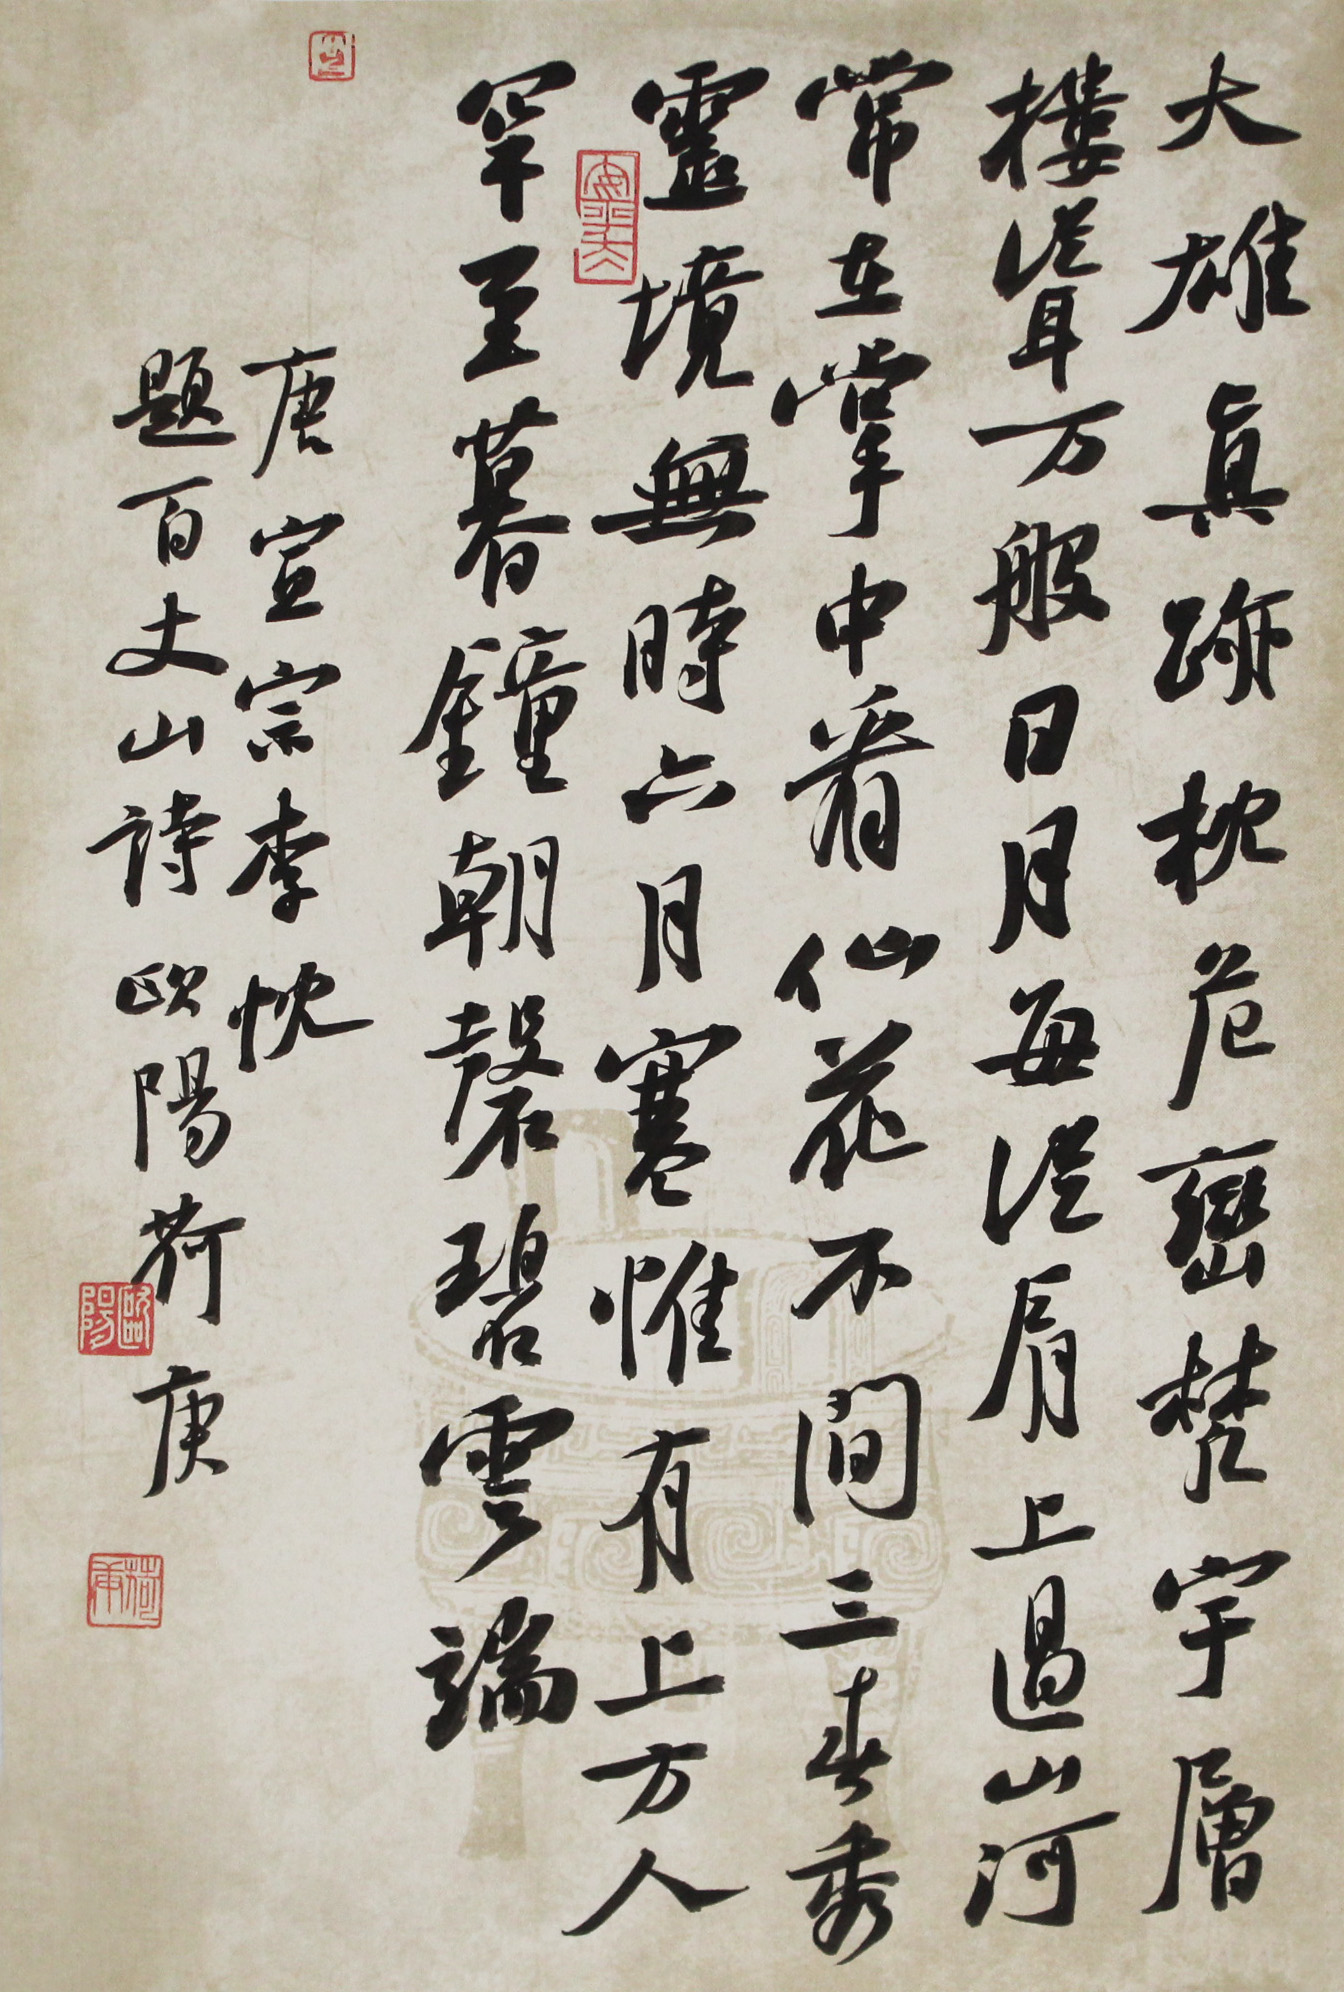 大雄真跡枕危巒梵宇層
樓從聳万般日月每從肩上過山河
常在掌中看仙花不間三春秀
靈境無時六月寒惟有上方人
罕至暮鐘朝磬碧雲端
唐宣宗李忱
題百丈山詩歐陽荷庚
歐陽
荷庚